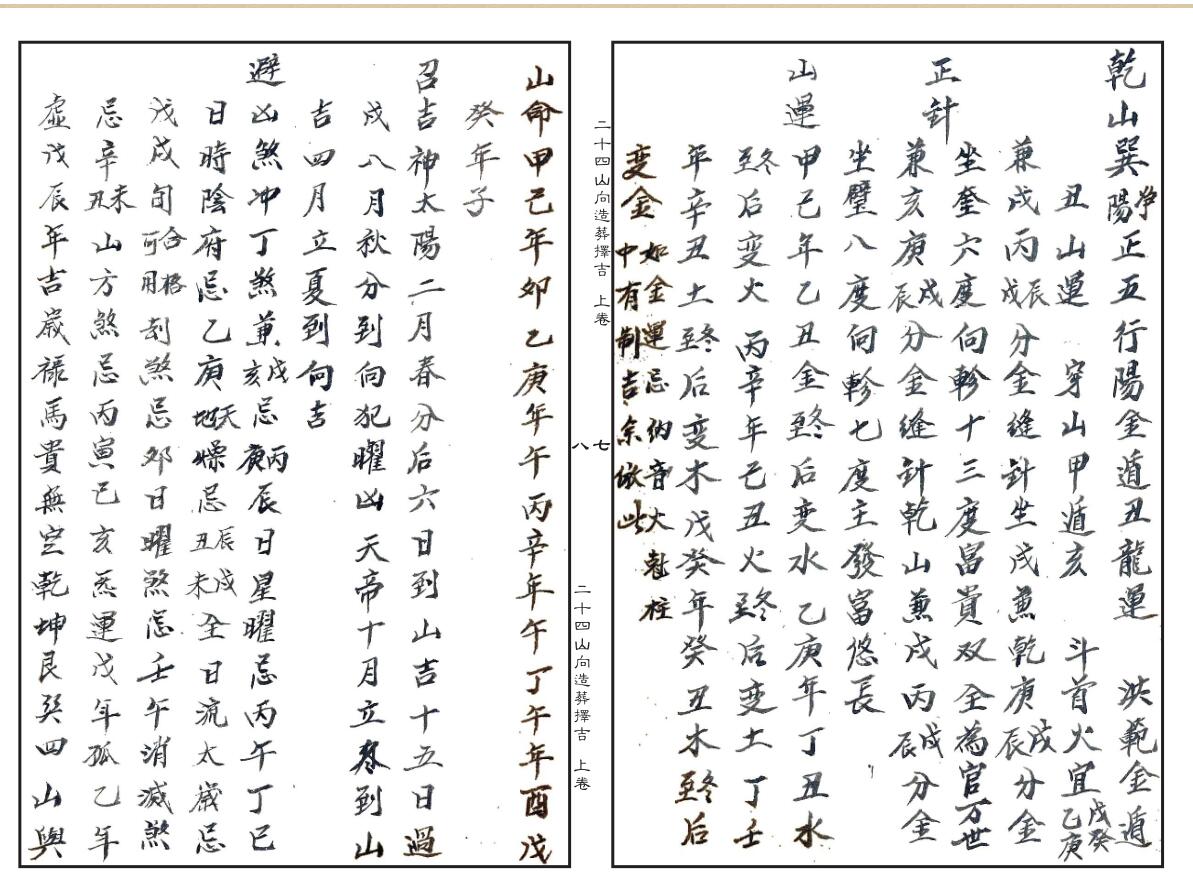 乾山巽陽净正五行陽金遁丑龍運 洪範金遁
丑山運 穿山甲遁亥 斗首火宜戊癸乙庚
正針
兼戌丙辰戌分金縫針坐戌兼乾庚戌辰分金
坐奎六度向軫十三度富貴双全為官万世
兼亥庚戌辰分金縫針乾山兼戌丙戌辰分金
坐璧八度向軫七度主發富悠長
山運
甲己年乙丑金冬至后变水乙庚年丁丑水
冬至后变火丙辛年己丑火冬至后变土丁壬
年辛丑土冬至后变木戊癸年癸丑木冬至后
变金如金運忌納音火尅柱中有制吉余倣此
二十四山向造葬擇吉 上卷
七
八
二十四山向造葬擇吉 上卷
山命甲己年卯乙庚年午丙辛年午丁午年酉戊
癸年子
召吉神太陽二月春分后六日到山吉十五日過
戌八月秋分到向犯曜凶天帝十月立冬到山
吉四月立夏到向吉
避凶煞冲丁煞兼戌亥忌丙庚辰日星曜忌丙午丁巳
日時陰府忌乙庚天地燥忌辰戌丑未全日流太歲忌
戊戌旬合格可用刦煞忌卯日曜煞忌壬午消滅煞
忌辛未丑山方煞忌丙寅己亥忝運戊年孤乙年
虛戊辰年吉歲禄馬貴無空乾坤艮巽四山與